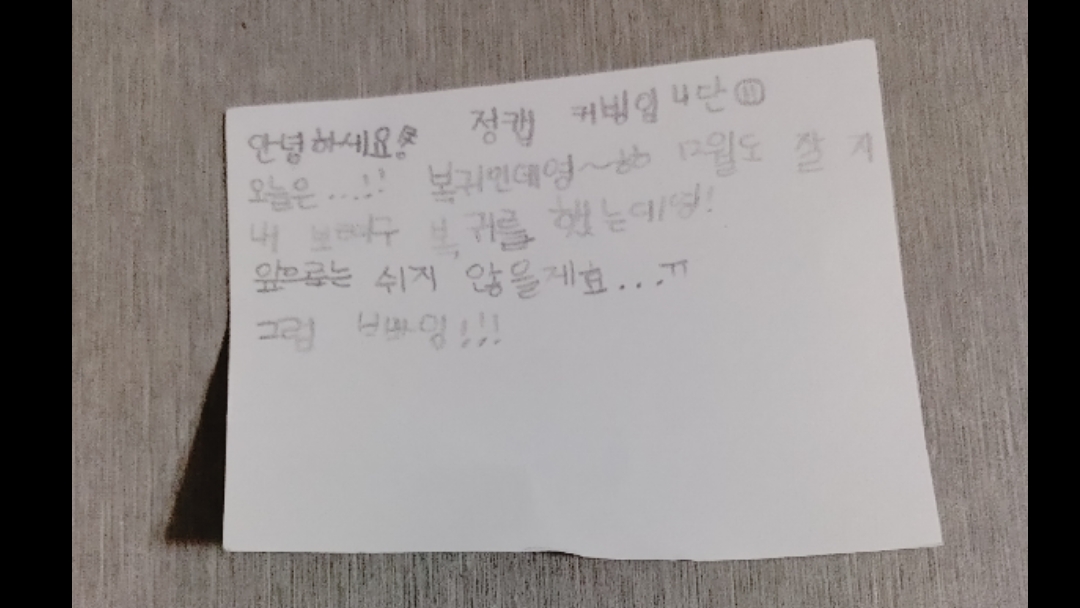 안녕하세요! 정캡 커빙입니단
오늘은...!! 복귀인데영~ 12월도 잘 지
내 보려구 복귀를 했는데영!
앞으로는 쉬지 않을게효...ㅠ
그럼 브빠잉!!!